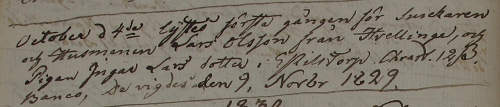 October d 4de lystes första gången för Snickaren
och Husmannen Lars Olsson från Hvellinge, och
Pigan Ingar Lars dotter i Eskelstorp
Banco, De vigdes den 9, Novbr 1829.
1830